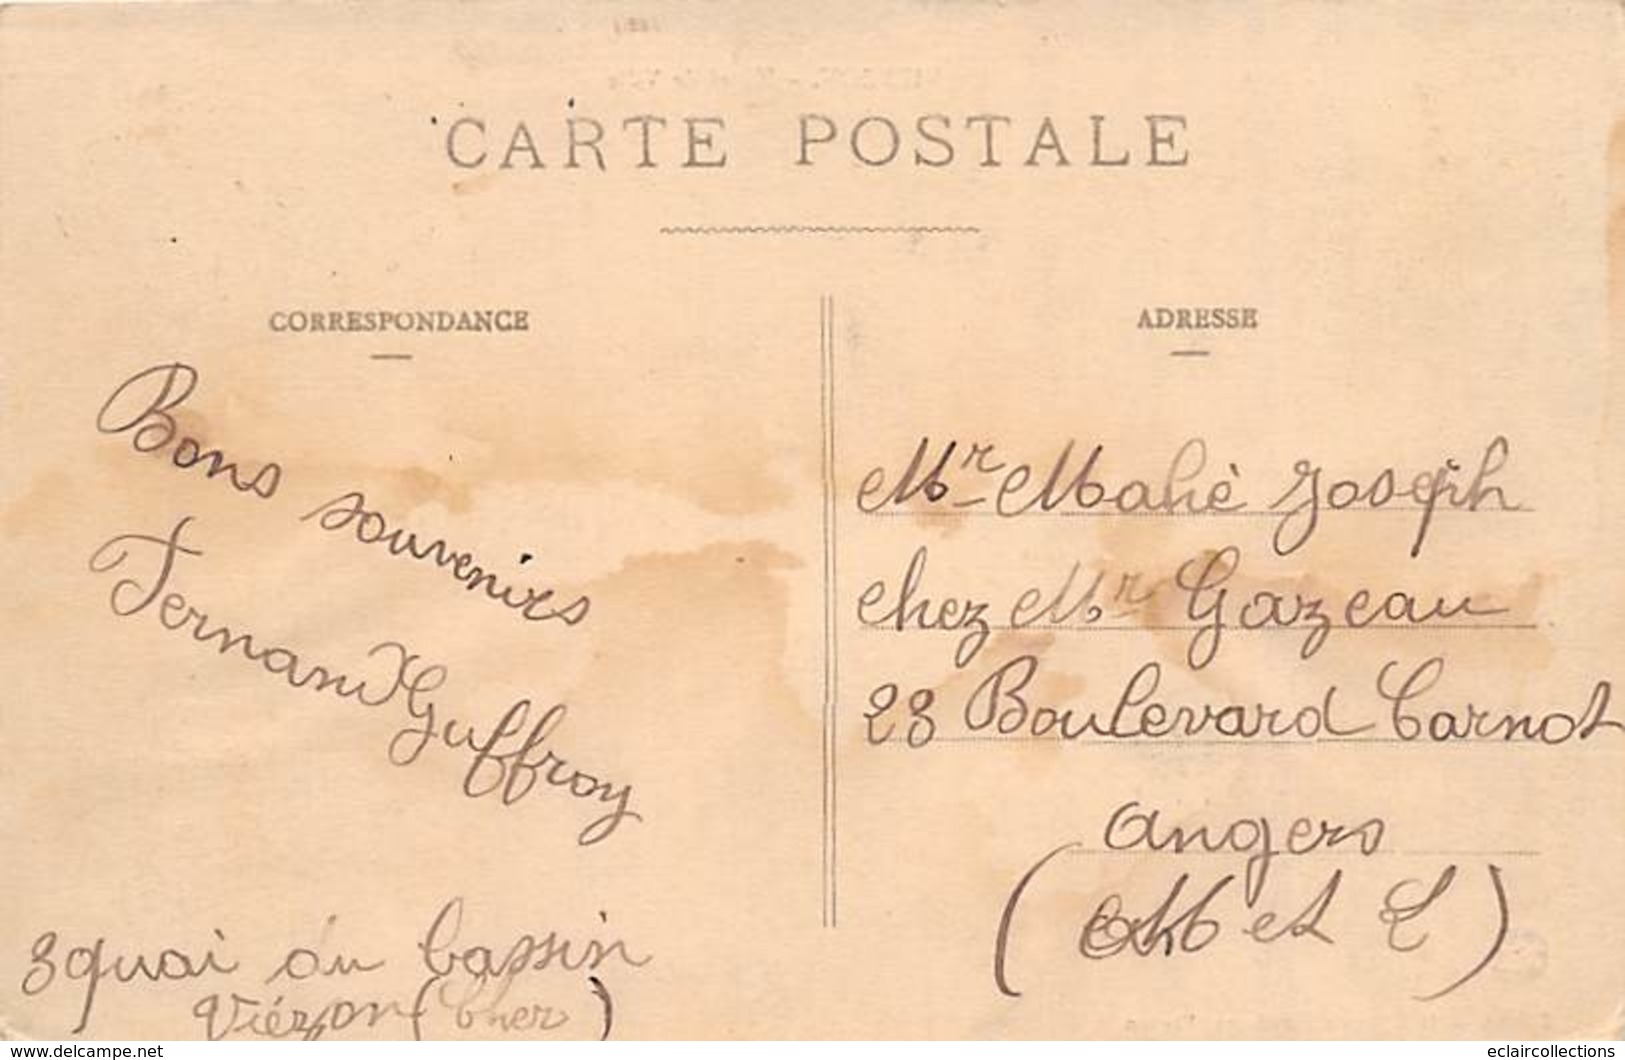 CARTE POSTALE
CORRESPONDANCE
Bons souvenirs
Fernand Guffroy
3 quai du bassin
Viérzon (Cher)
ADRESSE
Mr Mahè Joseph
chez Mr Gazeau
23 Boulevard Carnot
Angers
(M et L)
www.delcampe.net
eclaircollections